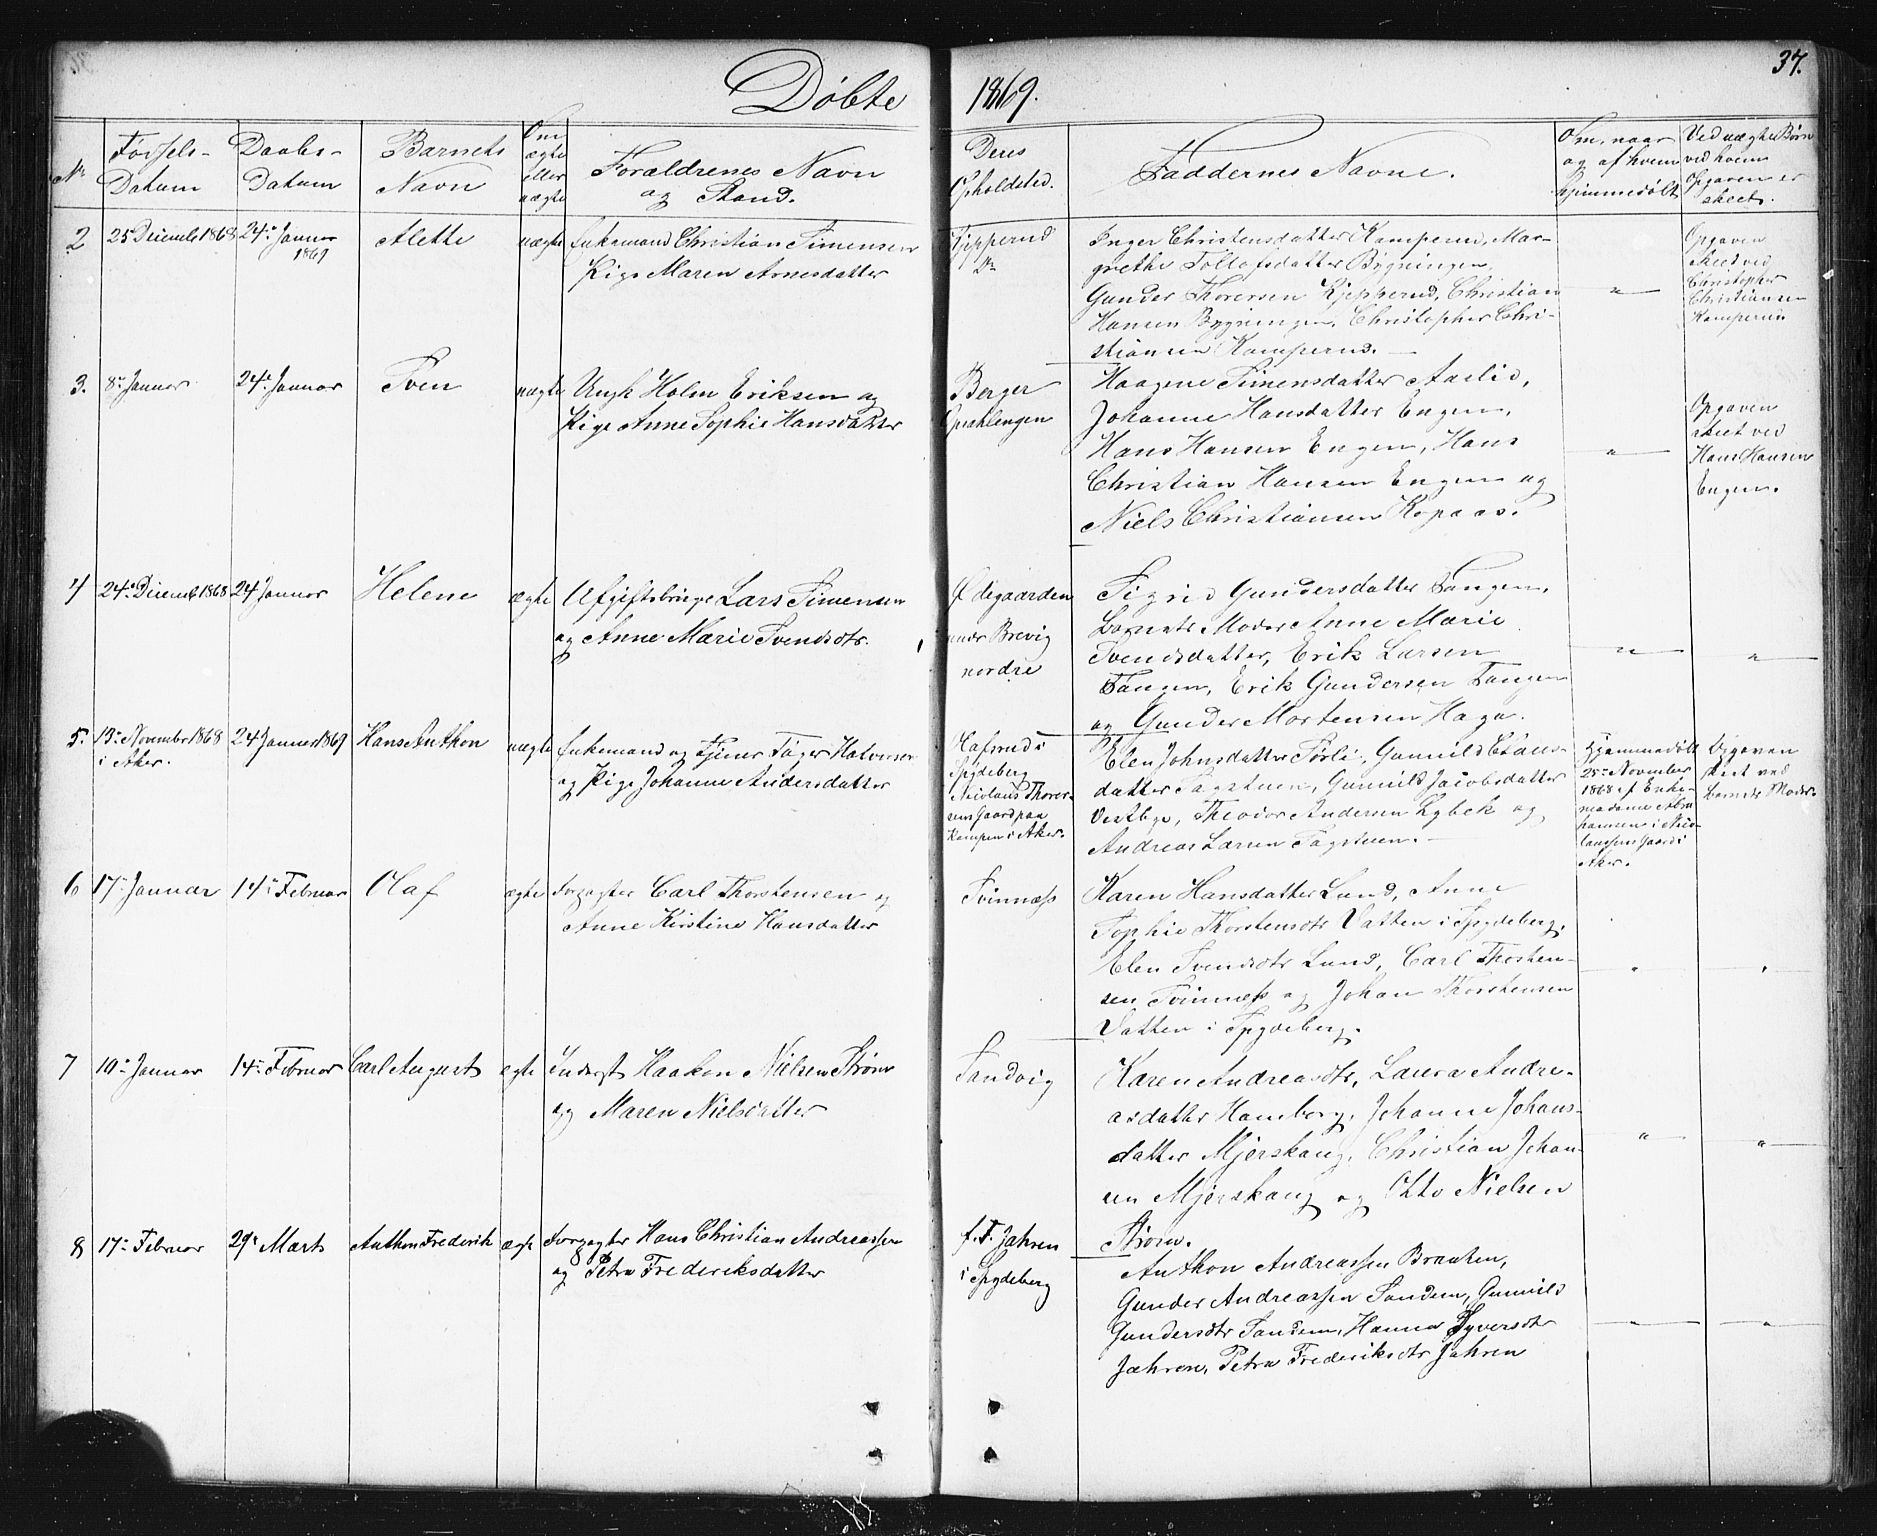 Døbte
1869.
37.
No
Fødsels-
Datum
Daabs-
Datum
Barnets
Navn
Om
ægte
eller
uægte
Forældrenes Navn
og Stand.
Deres
Opholdsted.
Faddernes Navne.
Om, naar
og af hvem
hjemmedøbt
Ved uægte Børn
ved hvem
Opgaven er
skeet.
2
25de Decembr 1868
24de Januar
1869
Alette
uægte
Enkemand Christian Simensen
Pige Maren Arnesdatter
Kjepperud
Do
Inger Christensdatter Kamperud, Mar-
grethe Tollofsdatter Bygningen,
Gunder Thoresen Kjepperud, Christian
Hansen Bygningen, Christopher Chri-
stiansen Kamperud.
"
Opgaven
skeet ved
Christopher
Christiansen
Kamperud
3.
8de Januar
24de Januar
Sven
uægte
Ungk Holm Eriksen og
Pige Anne Sophie Hansdatter
Berger
Opsahlengen
Haagene Simensdatter Aaslie,
Johanne Hansdatter Engen,
Hans Hansen Engen, Hans
Christian Hansen Engen og
Niels Christiansen Kopaas.
"
Opgaven
skeet ved
Hans Hansen
Engen.
4
24de Decemb 1868
24 Januar
Helene
ægte
Afgiftsbruger Lars Simensen
og Anne Marie Svendsdtr.
Ødegaarden
under Brevig
nordre
Sigrid Gundersdatter Tangen,
Barnets Moder Anne Marie
Svendsdatter, Erik Larsen
Tangen, Erik Gundersen Tangen
og Gunder Mortensen Haga.
"
"
5.
13de November 1868
i Aker.
24 Januar 1869
Hans Anthon
uægte
Enkemand og Tjener Tøger Halvorsen
og Pige Johanne Andersdatter
Hafsrud i
Spydeberg
Nicolaus Thorer-
sens Gaard paa
Kampen i Aker.
Elen Johnsdatter Sørli, Gunnild Claus-
datter Tagstuen, Gunnild Jacobsdatter
Vestbye, Theodor Andersen Lybek og
Andreas Larsen Tagstuen.
Hjemmedøbt
25de November
1868 af Enke-
madame Abra
hamsen i Nico-
laysens Gaard i
Aker.
Opgaven
skeet ved
Barnets Moder.
6
17de Januar
14de Februar
Olaf
ægte
Forpagter Carl Thorstensen og
Anne Kirstine Hansdatter
Svinnæss
Karen Hansdatter Lund, Anne
Sophie Thorstensdtr Vatten i Spydeberg,
Elen Svendsdtr Lund, Carl Thosten-
sen Svinnæss og Johan Thorstensen
Vatten i Spydeberg.
"
"
7
10de Januar
14de Februar
Carl August
ægte
Inderst Haakon Nielsen Strøm
og Maren Nielsdatter
Sandvig
Karen Andreasdtr, Laura Andre-
asdatter Hamborg, Johanne Johans-
datter Mjerskaug, Christian Johan-
sen Mjerskaug og Otto Nielsen
Strøm.
"
"
8
17de Februar
29de Marts
Anthon Frederik
ægte
Forpagter Hans Christian Andreassen
og Petra Frederiksdatter
f. T. Jahren
i Spydeberg
Anthon Andreassen Braaten,
Gunder Andreassen Sandem, Gunnild
Gundersdtr Sandem, Hanna Syversdtr
Jahren, Petra Frederiksdtr Jahren
"
"